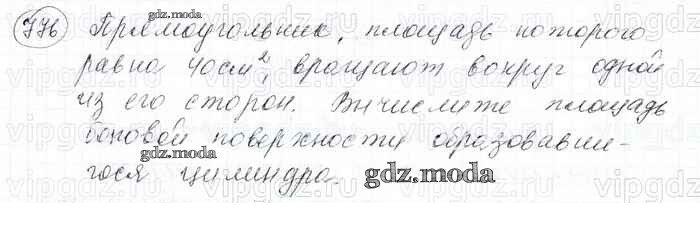 776 Прямоугольник, площадь которого
равна 40см², вращают вокруг одной
из его сторон. Вычислите площадь
боковой поверхности образовавше-
гося цилиндра.
gdz.moda
gdz.moda
gdz.moda
gdz.moda
gdz.moda